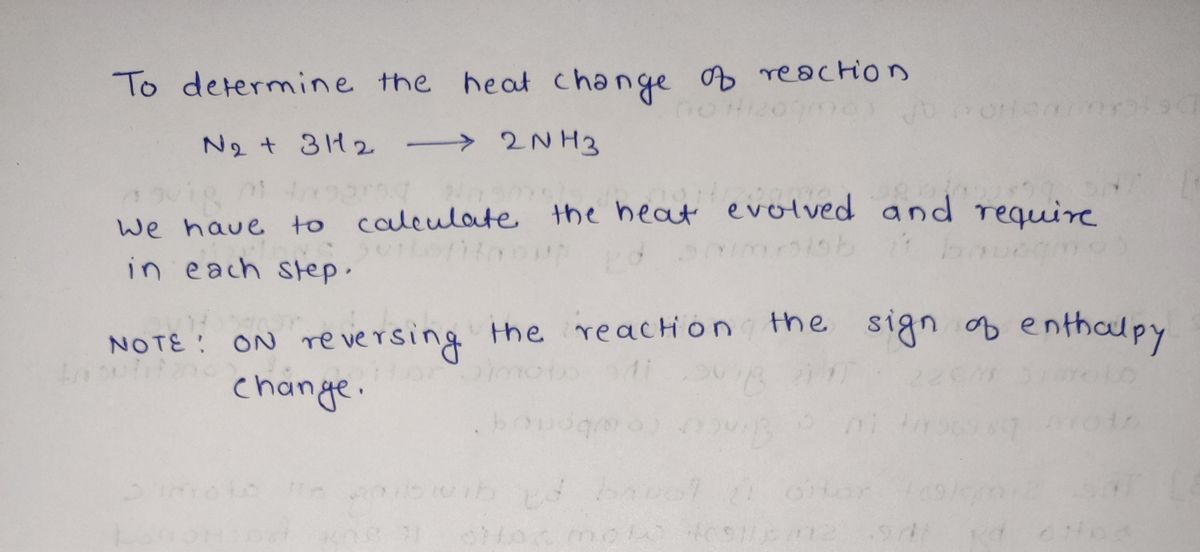 To determine the heat change of reaction
N2 + 3H2 → 2NH3
We have to calculate the heat evolved and require
in each step.
NOTE: ON reversing the reaction the sign of enthalpy
change.